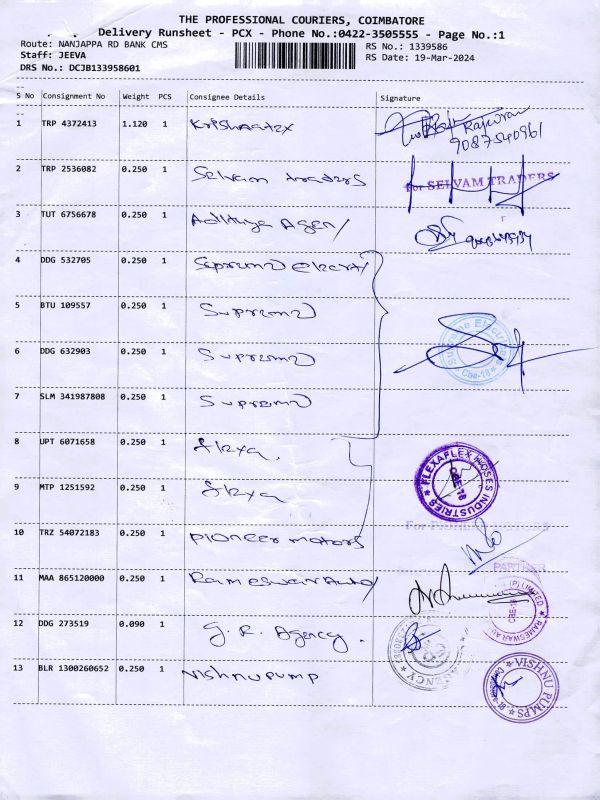 THE PROFESSIONAL COURIERS, COIMBATORE
Delivery Runsheet - PCX - Phone No.:0422-3505555 - Page No.:1
Route: NANJAPPA RD BANK CMS RS No.: 1339586
Staff: JEEVA RS Date: 19-Mar-2024
DRS No.: DCJB133958601
S No Consignment No Weight PCS Consignee Details Signature
1 TRP 4372413 1.120 1 Rajeswari
9087540961
2 TRP 2536082 0.250 1 Selvam traders For SELVAM TRADERS
3 TUT 6756678 0.250 1 Adithya Agen
4 DDG 532705 0.250 1 Supreme
5 BTU 109557 0.250 1 Supreme
6 DDG 632903 0.250 1 Supreme Cbe-18
7 SLM 341987808 0.250 1 Supreme
8 UPT 6071658 0.250 1 FLEXAFLEX HOSES INDUSTRIES CBE-18
9 MTP 1251592 0.250 1
10 TRZ 54072183 0.250 1 Pioneer motors For
11 MAA 865120000 0.250 1 Rameswar Auto PARTNER
(P) LIMITED RAMESWAR AU CBE-18
12 DDG 273519 0.090 1 G.R. Agency. AGENCY
13 BLR 1300260652 0.250 1 Vishnu pump VISHNU PUMPS